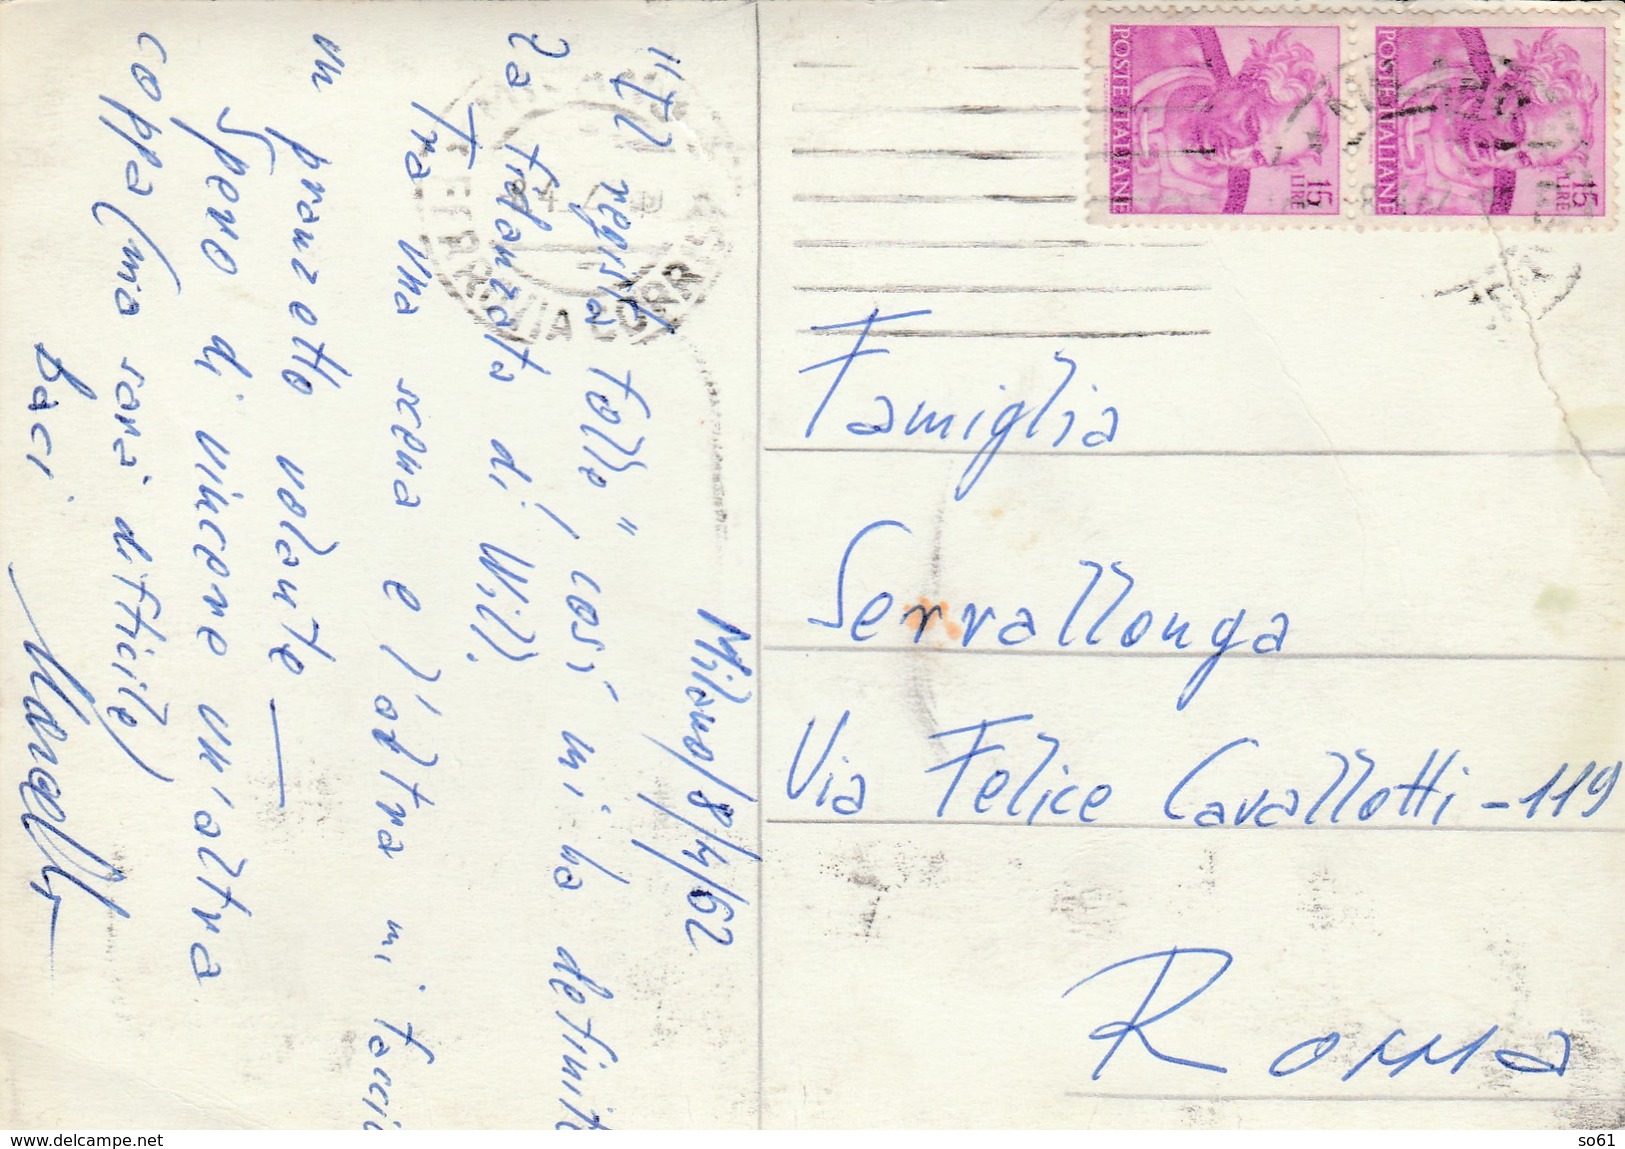 Milano/8/4/62
"Il regista folle" così mi ha definito
la fidanzata di Will.
Tra una scena e l'altra mi faccio
un pranzetto volante —
Spero di vincere un'altra
coppa (ma sarà difficile)
baci.
POSTE ITALIANE
LIRE
15
POSTE ITALIANE
LIRE
15
FERROVIA CORR
Famiglia
Serrallonga
Via Felice Cavallotti - 119
Roma
delcampe.net
so61